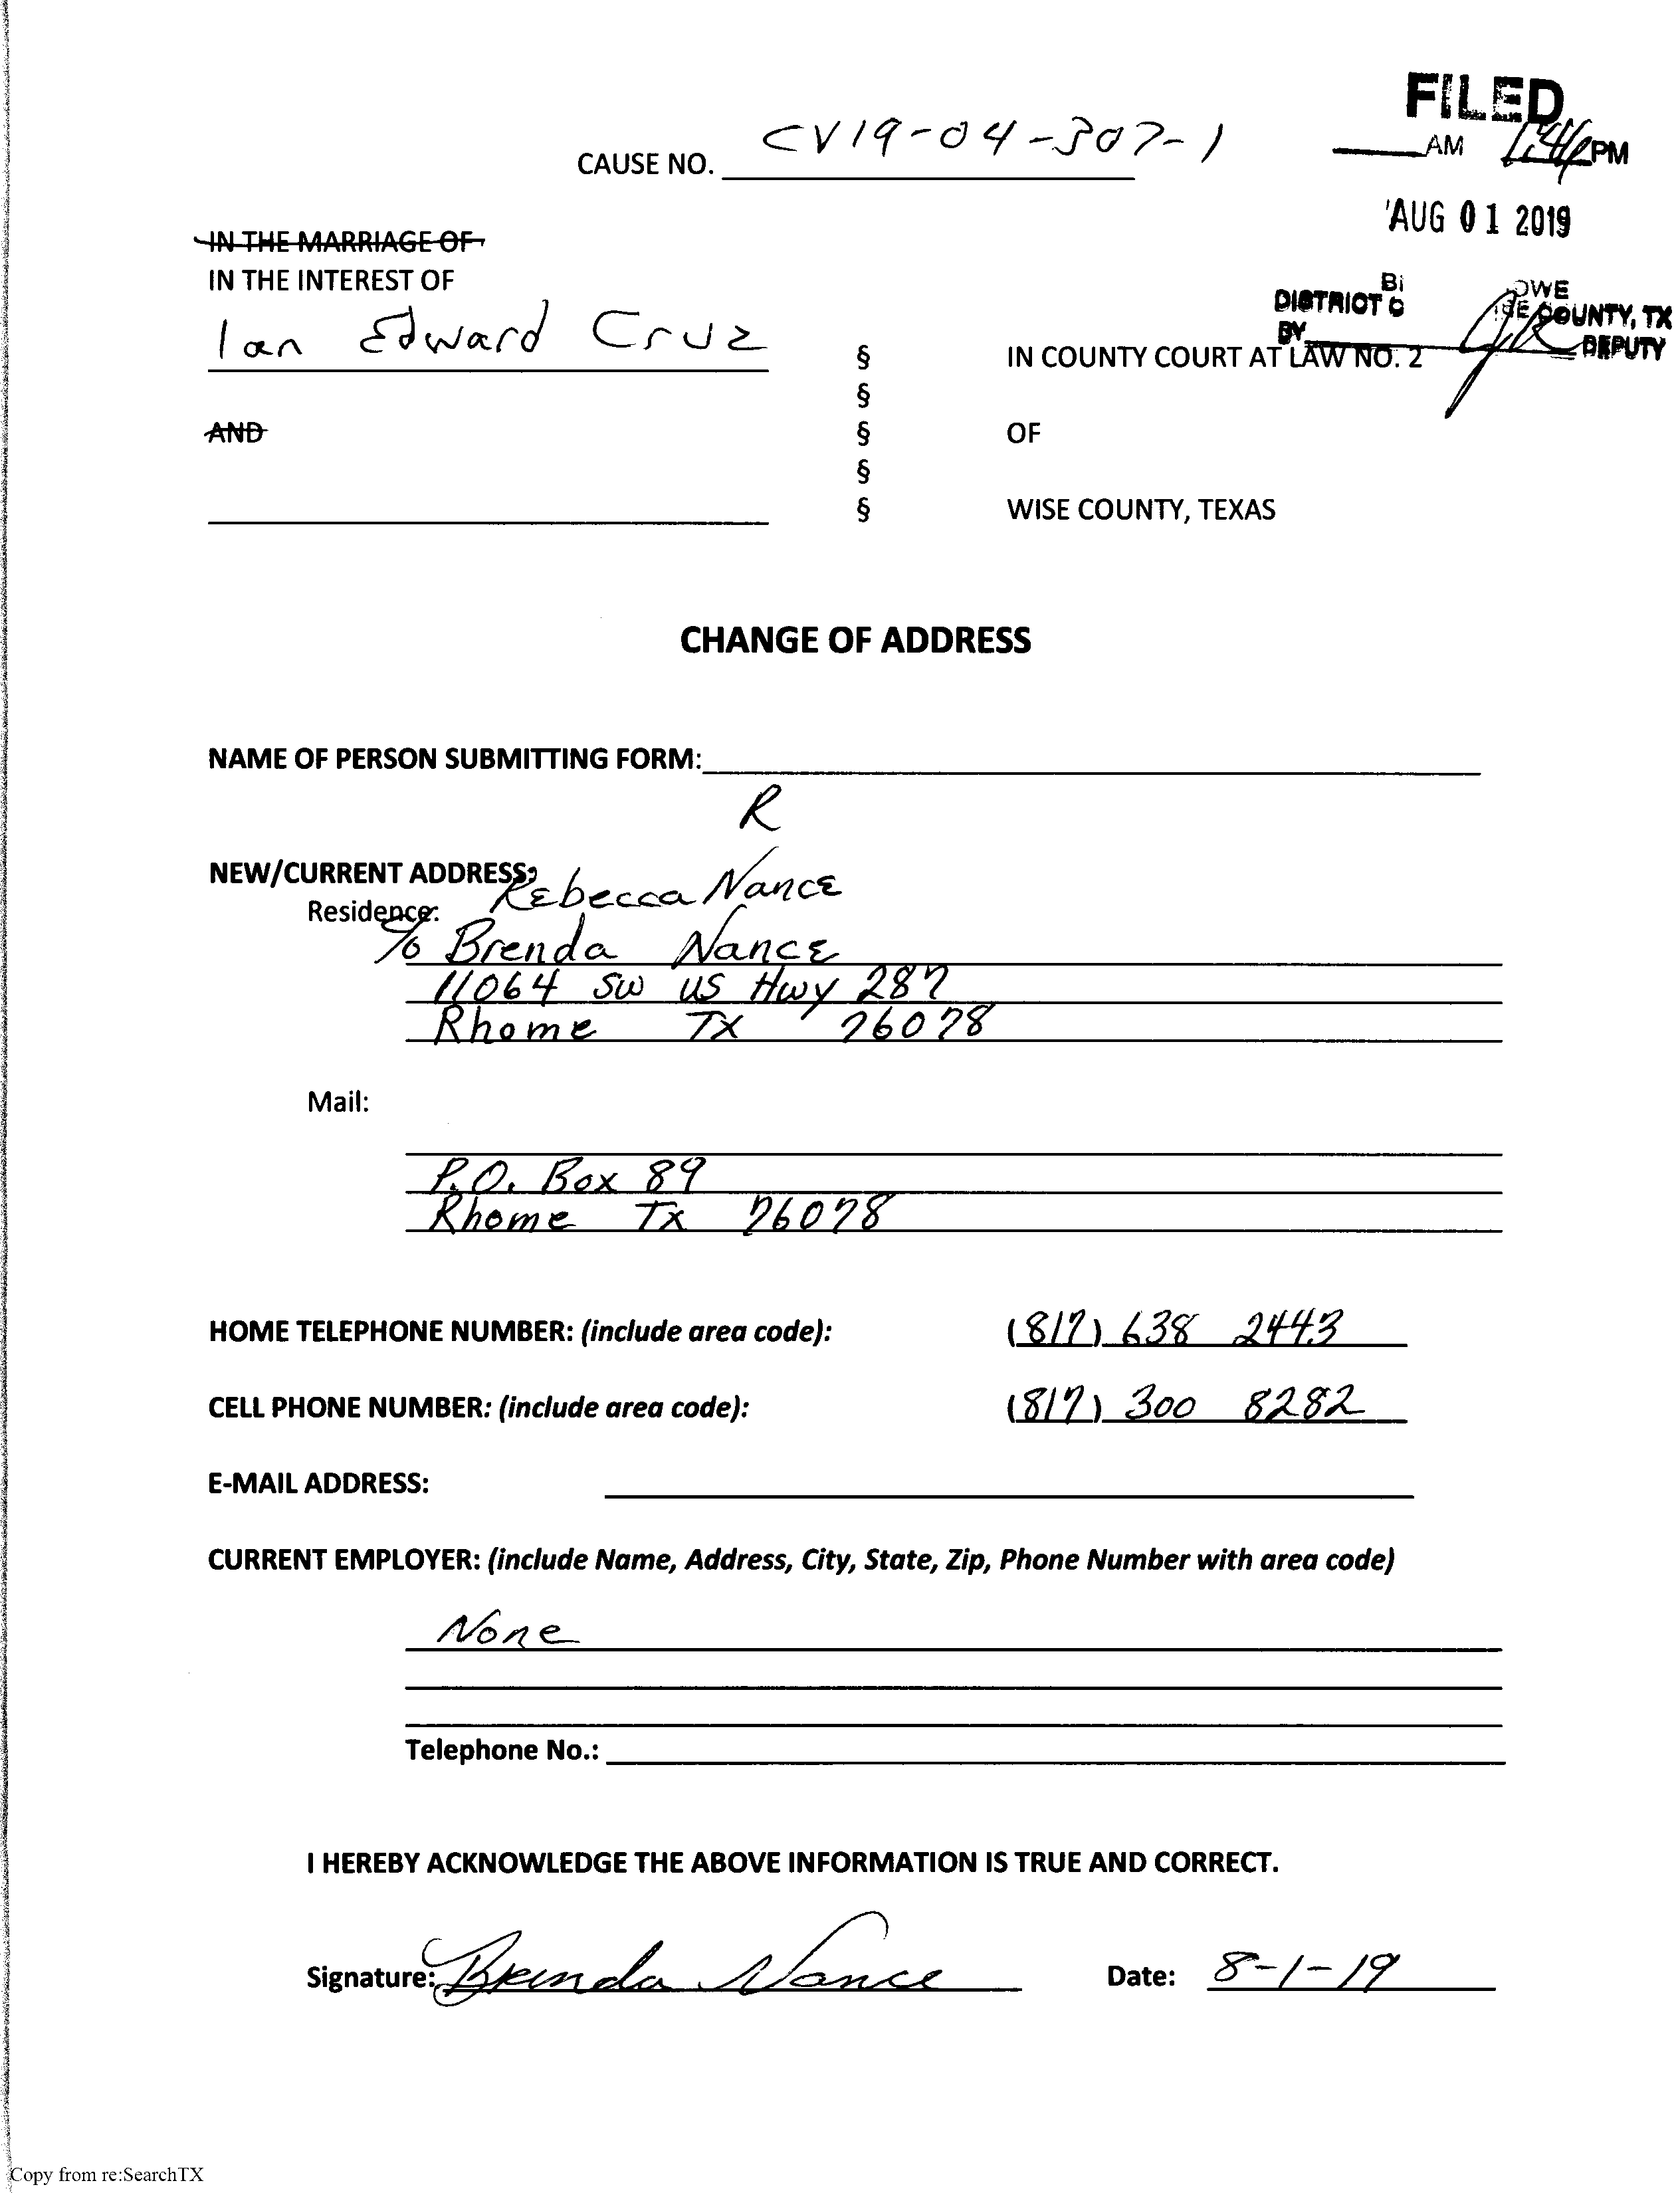 FILED
CAUSE NO. CV19-04-307-1
AM PM
AUG 01 2019
IN THE MARRIAGE OF
IN THE INTEREST OF
DISTRICT
COUNTY, TX
BY DEPUTY
Ian Edward Cruz § IN COUNTY COURT AT LAW NO. 2
§
AND § OF
§
§ WISE COUNTY, TEXAS
CHANGE OF ADDRESS
NAME OF PERSON SUBMITTING FORM:
R
NEW/CURRENT ADDRESS:
Rebecca Nance
Residence:
% Brenda Nance
11064 SW US Hwy 287
Rhome TX 76078
Mail:
P.O. Box 89
Rhome Tx 76078
HOME TELEPHONE NUMBER: (include area code): (817) 638 2443
CELL PHONE NUMBER: (include area code): (817) 300 8282
E-MAIL ADDRESS:
CURRENT EMPLOYER: (include Name, Address, City, State, Zip, Phone Number with area code)
None
Telephone No.:
I HEREBY ACKNOWLEDGE THE ABOVE INFORMATION IS TRUE AND CORRECT.
Signature: Brenda Nance Date: 8-1-19
Copy from re:SearchTX